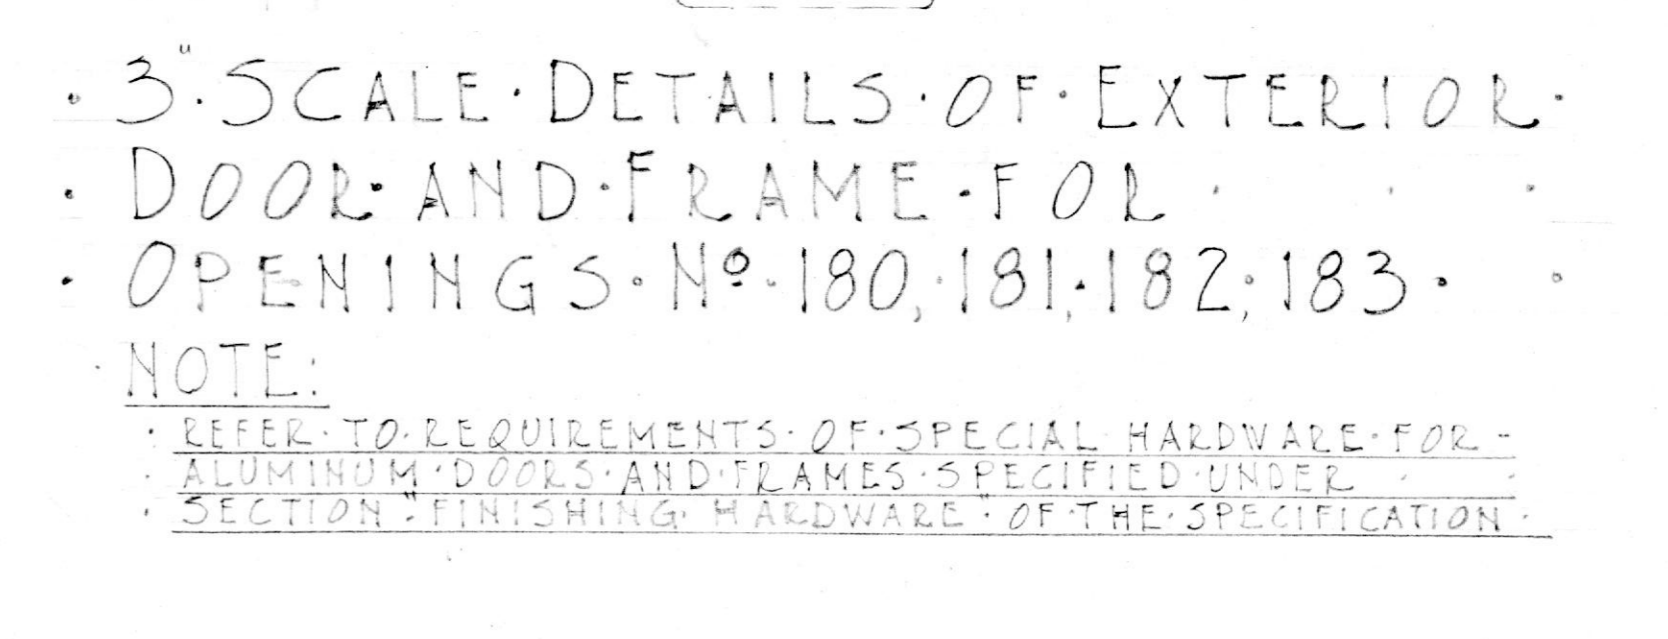 ·3"·SCALE·DETAILS·OF·EXTERIOR·
·DOOR·AND·FRAME·FOR· · ·
·OPENINGS·Nº·180,·181,·182,·183· ·
·NOTE:
·REFER·TO·REQUIREMENTS·OF·SPECIAL HARDWARE·FOR-
·ALUMINUM·DOORS·AND·FRAMES·SPECIFIED·UNDER · ·
·SECTION·"FINISHING·HARDWARE"·OF·THE·SPECIFICATION·